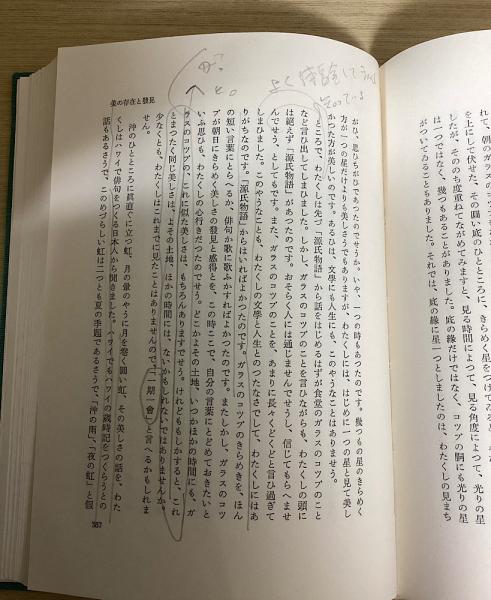 上にして伏せた、その圓い底のひとところに、きらめく星をつけてゐると
したが、そののち度重ねてながめてみますと、見る時間によつて、見る角度によつて、光りの星
は一つではなく、幾つもあることがありました。底の緣だけではなく、コツプの胴にも光りの星
がついてゐることもありました。それでは、底の緣に星一つとしましたのは、わたくしの見まち
がひ、思ひちがひであつたのでせうか。いや、一つの時もあつたのです。幾つもの星のきらめく
方が一つの星だけよりも美しさうでもありますが、わたくしには、はじめに一つの星と見て美し
かつた方が美しいのです。あるひは、文學にも人生にも、このやうなことはありませう。
ところで、わたくしは先づ「源氏物語」から話をはじめるはずが食堂のガラスのコツプのこと
など言ひ出してしまひました。しかし、ガラスのコツプのことを言ひながらも、わたくしの頭に
は絕えず「源氏物語」があつたのです。おそらく人には通じませんでせうし、信じてもらへませ
んでせう、としてもです。また、ガラスのコツプのことを、あまりに長々くどくどと言ひ過ぎて
しまひました。このやうなことも、わたくしの文學と人生とのつたなさでして、わたくしにはあ
りがちなのです。「源氏物語」からはいればよかつたのです。ガラスのコツプのきらめきを、ほん
の短い言葉にとらへるか、俳句か歌にふかすればよかつたのです。またしかし、ガラスのコツ
プが朝日にきらめく美しさの發見と感得とを、この時ここで、自分の言葉にとどめておきたいと
いふ思ひも、わたくしの心行きだつたのでせう。どこかよその土地、いつかほかの時間にも、ガ
ラスのコツプの、これに似た美しさは、もちろんありますでせう。けれどももしかすると、これ
とまつたく同じ美しさは、よその土地、ほかの時間には、ないかもしれないではありませんか。
少なくとも、わたくしはこれまでに見たことはありませんので、「一期一會」と言へるかもしれま
せん。
沖のひとところに眞直ぐに立つ虹、月の暈のやうに月を巻く圓い虹、その美しさの話を、わた
くしはハワイで俳句をつくる日本人から聞きました。ハワイでもハワイの歲時記をつくらうとの
話もあるさうで、このめづらしい虹は二つとも夏の季題であるさうで、「沖の雨」、「夜の虹」と假
美の存在と發見
387
と。